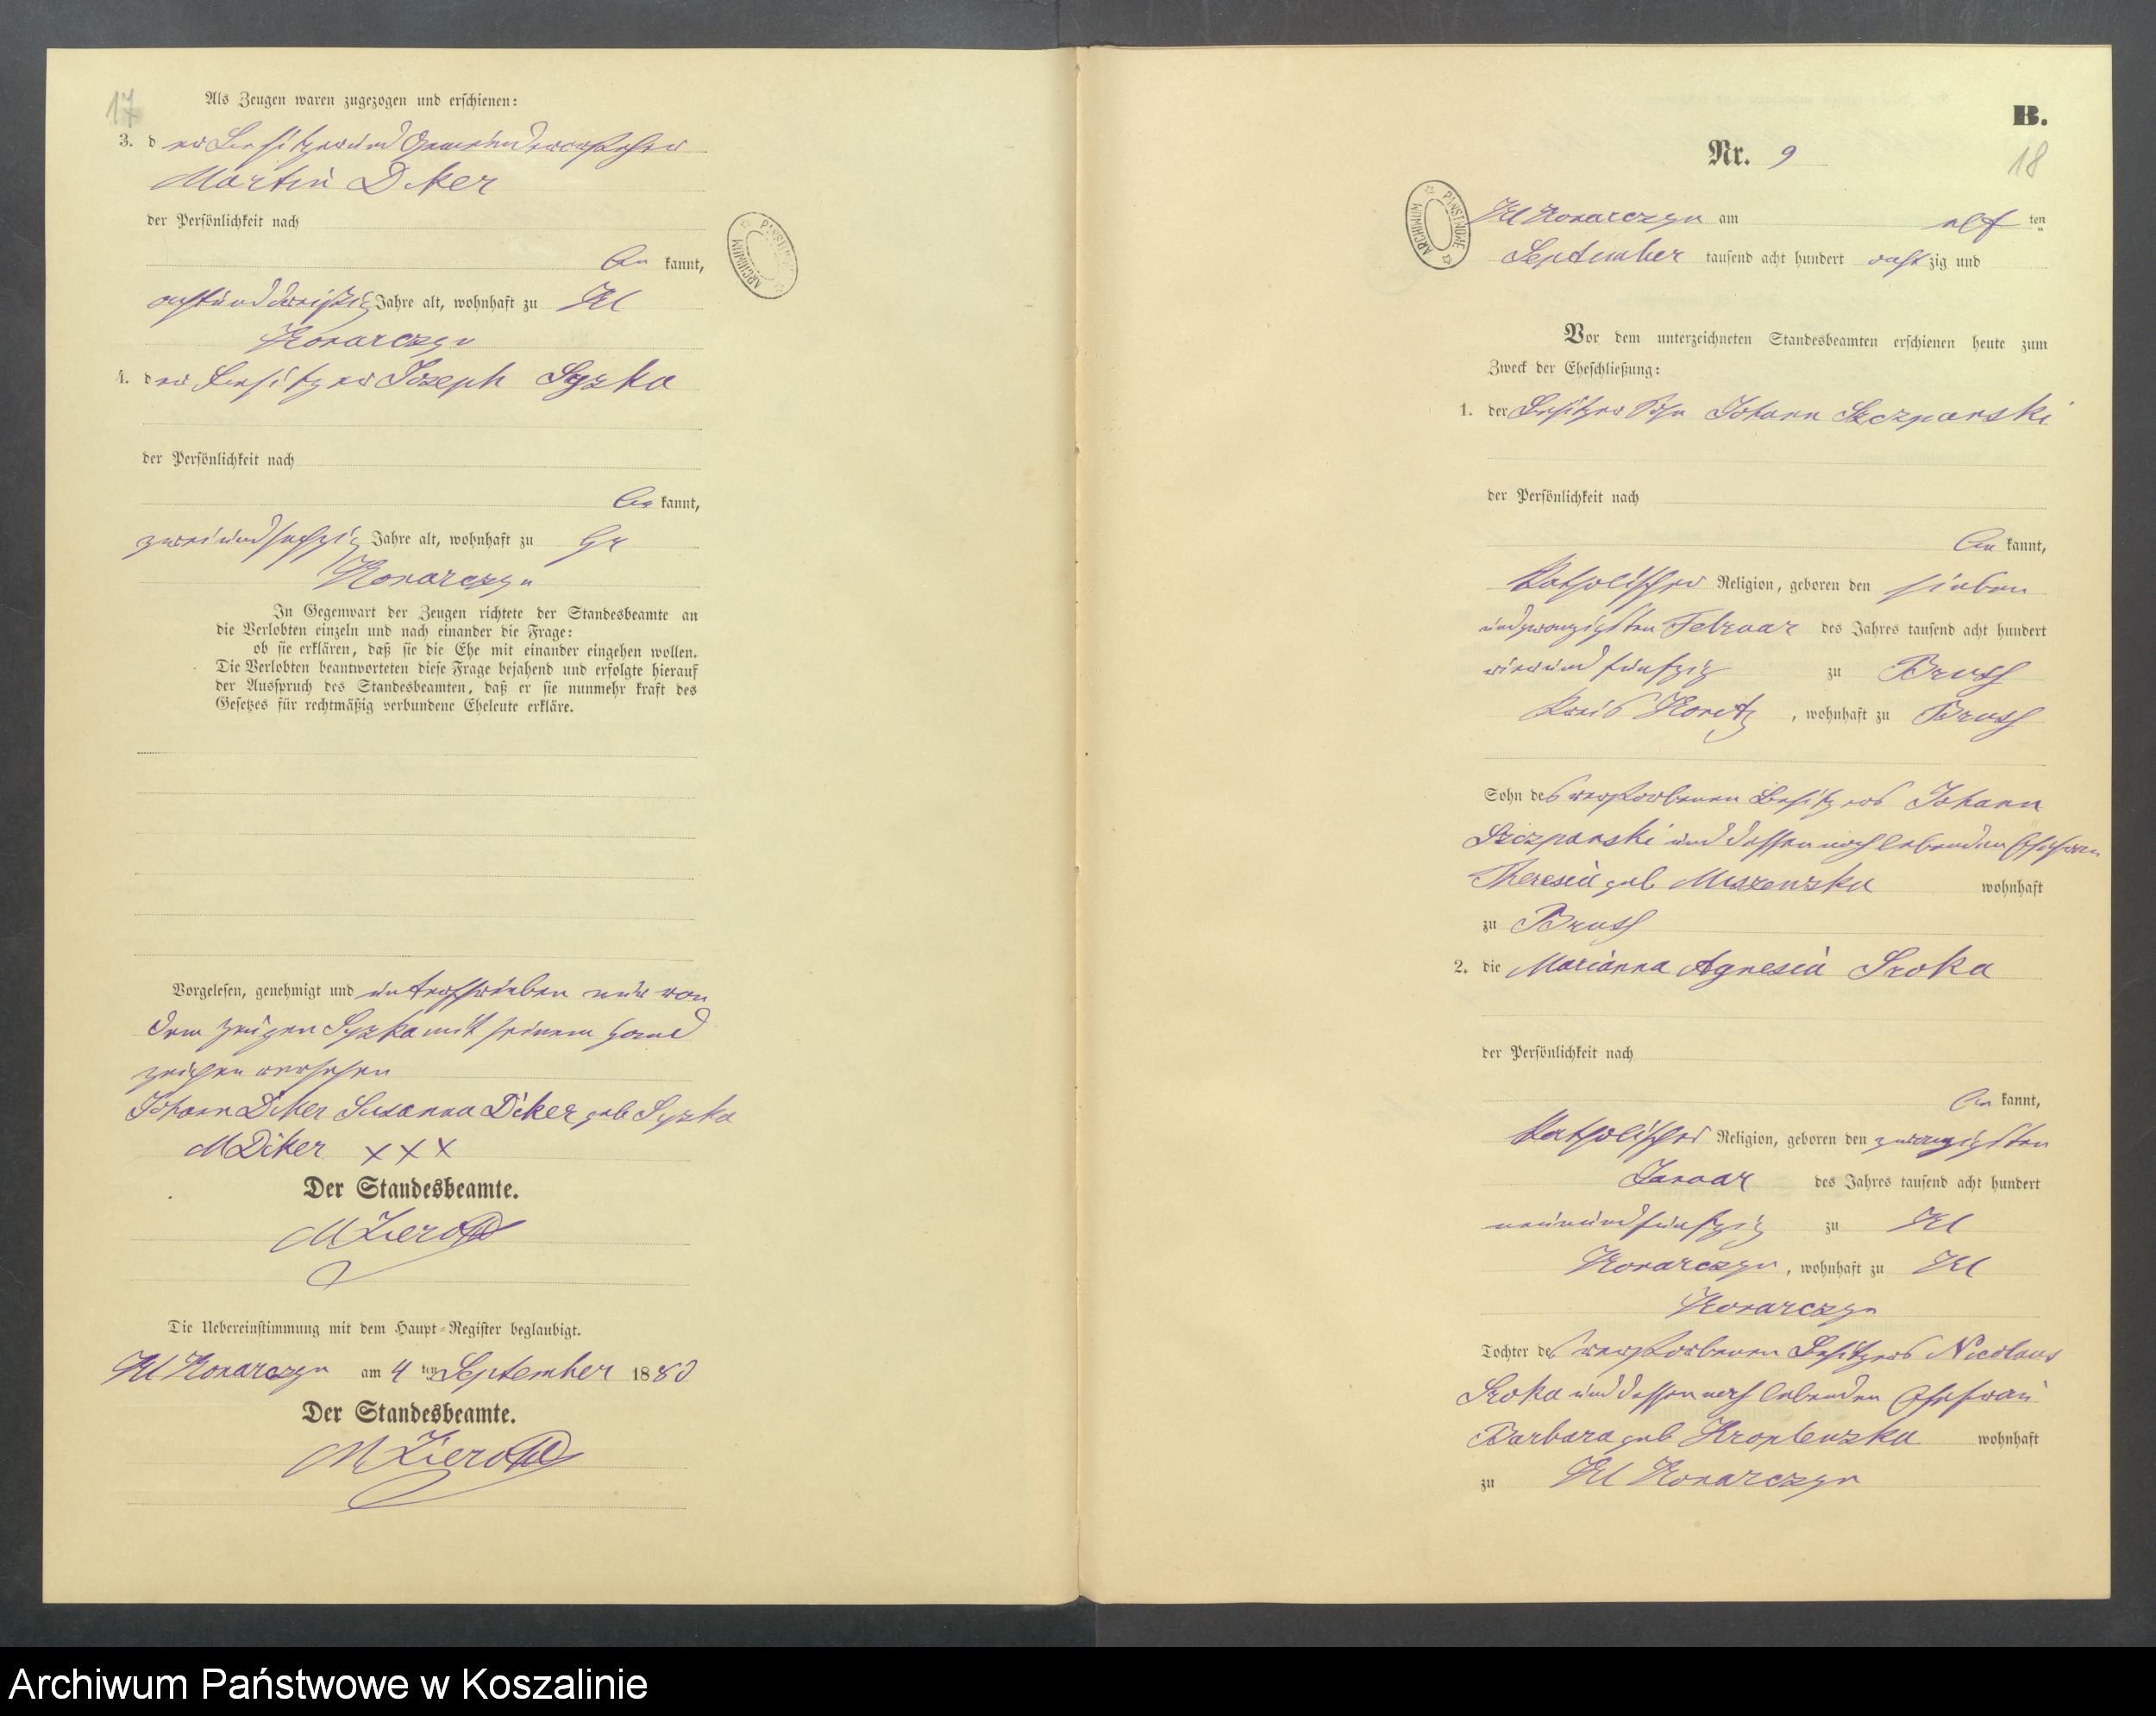 17
Als Zeugen waren zugezogen und erschienen:
3. der Besitzer und Gemeindevorsteher
Martin Diker
der Persönlichkeit nach
be kannt,
achtunddreißig Jahre alt, wohnhaft zu Kl
Konarczyn
4. der Besitzer Joseph Syzka
der Persönlichkeit nach
be kannt,
zweiundsechzig Jahre alt, wohnhaft zu Gr
Konarczyn
In Gegenwart der Zeugen richtete der Standesbeamte an
die Verlobten einzeln und nach einander die Frage:
ob sie erklären, daß sie die Ehe mit einander eingehen wollen.
Die Verlobten beantworteten diese Frage bejahend und erfolgte hierauf
der Ausspruch des Standesbeamten, daß er sie nunmehr kraft des
Gesetzes für rechtmäßig verbundene Eheleute erkläre.
Vorgelesen, genehmigt und unterschrieben nur von
dem Zeugen Syzka mit seinem Hand
zeichen versehen
Johann Diker Susanna Diker geb Syzka
M Diker XXX
Der Standesbeamte.
Die Uebereinstimmung mit dem Haupt-Register beglaubigt.
Kl Konarczyn am 4 ten September 1880
Der Standesbeamte.
B.
Nr. 9
18
Kl Konarczyn am elf ten
September tausend acht hundert acht zig und
Vor dem unterzeichneten Standesbeamten erschienen heute zum
Zweck der Eheschließung:
1. der Besitzer Sohn Johann Szczpanski
der Persönlichkeit nach
be kannt,
Katholischer Religion, geboren den sieben
undzwanzigsten Februar des Jahres tausend acht hundert
vierundfünfzig zu Bruss
Kreis Konitz, wohnhaft zu Bruss
Sohn des verstorbenen Besitzers Johann
Szczpanski und dessen noch lebenden Ehefrau
Theresia geb wohnhaft
zu Bruss
2. die Marianna Agnesia Sroka
der Persönlichkeit nach
be kannt,
Katholischer Religion, geboren den zwanzigsten
Januar des Jahres tausend acht hundert
neunundfünfzig zu Kl
Konarczyn, wohnhaft zu Kl
Konarczyn
Tochter des verstorbenen Besitzers Nicolaus
Sroka und dessen noch lebenden Ehefrau
Barbara geb wohnhaft
zu Kl Konarczyn
Archiwum Państwowe w Koszalinie